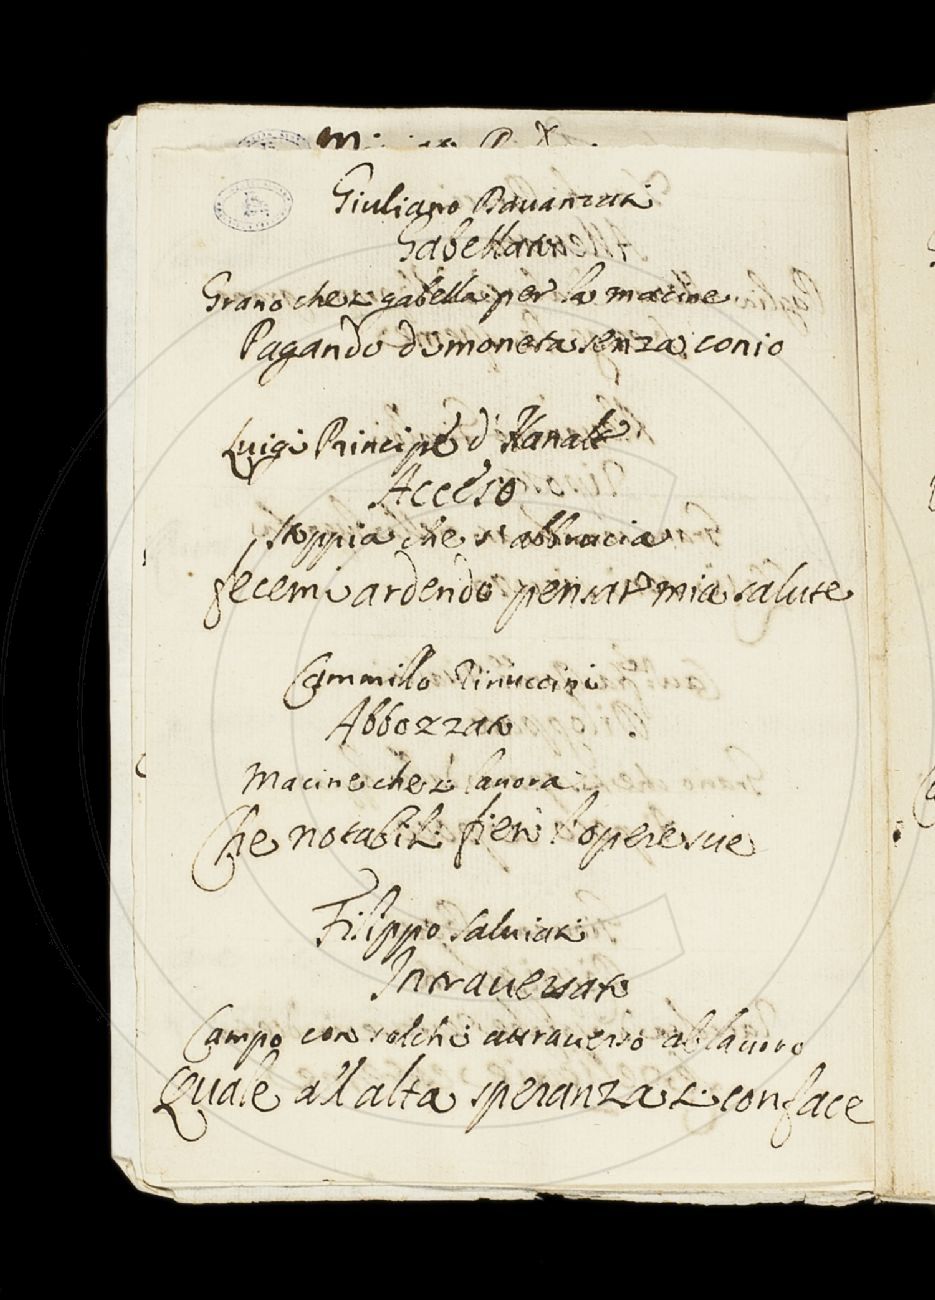 Giuliano Davanzati
Gabellato
Grano che si gabella per la macine
Pagando di moneta senza conio
Luigi Principe d'
Acceso
stoppia che s'abbrucia
fecemi ardendo pensar mia salute
Cammillo Rinuccini
Abbozzato
Macine che si lavora
Che notabili fien l'opere sue
Filippo Salviati
Intraversato
Campo con solchi attraverso al lavoro
Quale all'alta speranza si conface